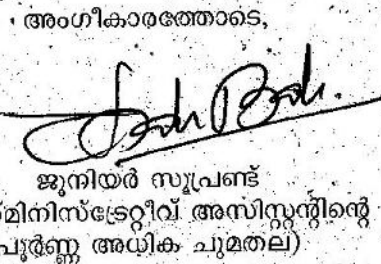 അംഗീകാരത്തോടെ,
ജൂനിയർ സൂപ്രണ്ട്
മിനിസ്ട്രേറ്റീവ് അസിസ്റ്റന്റിന്റെ
പൂർണ്ണ അധിക ചുമതല)